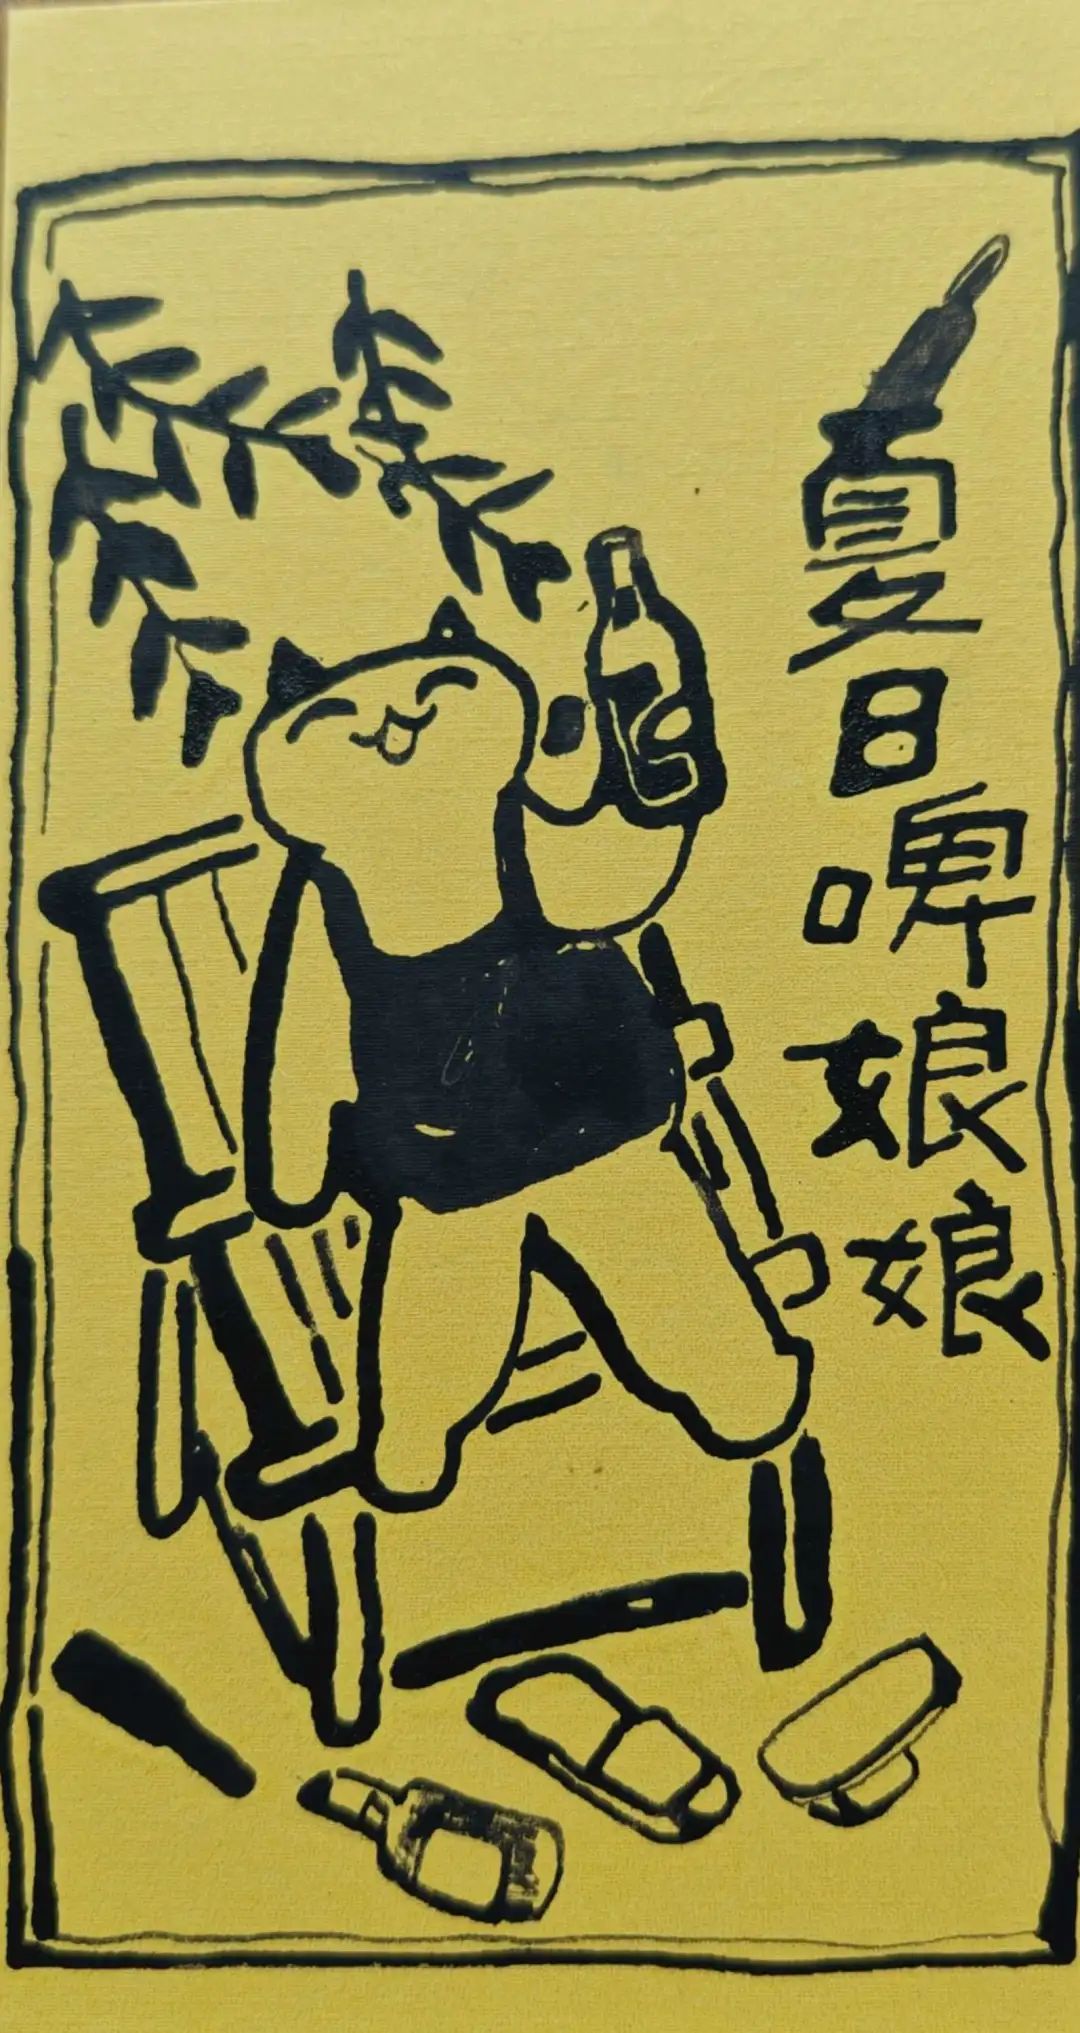 夏日啤娘娘